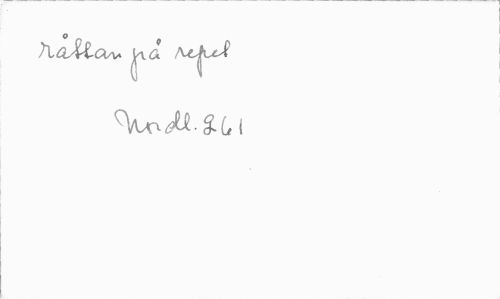 råttan på repet
Nordl. 261